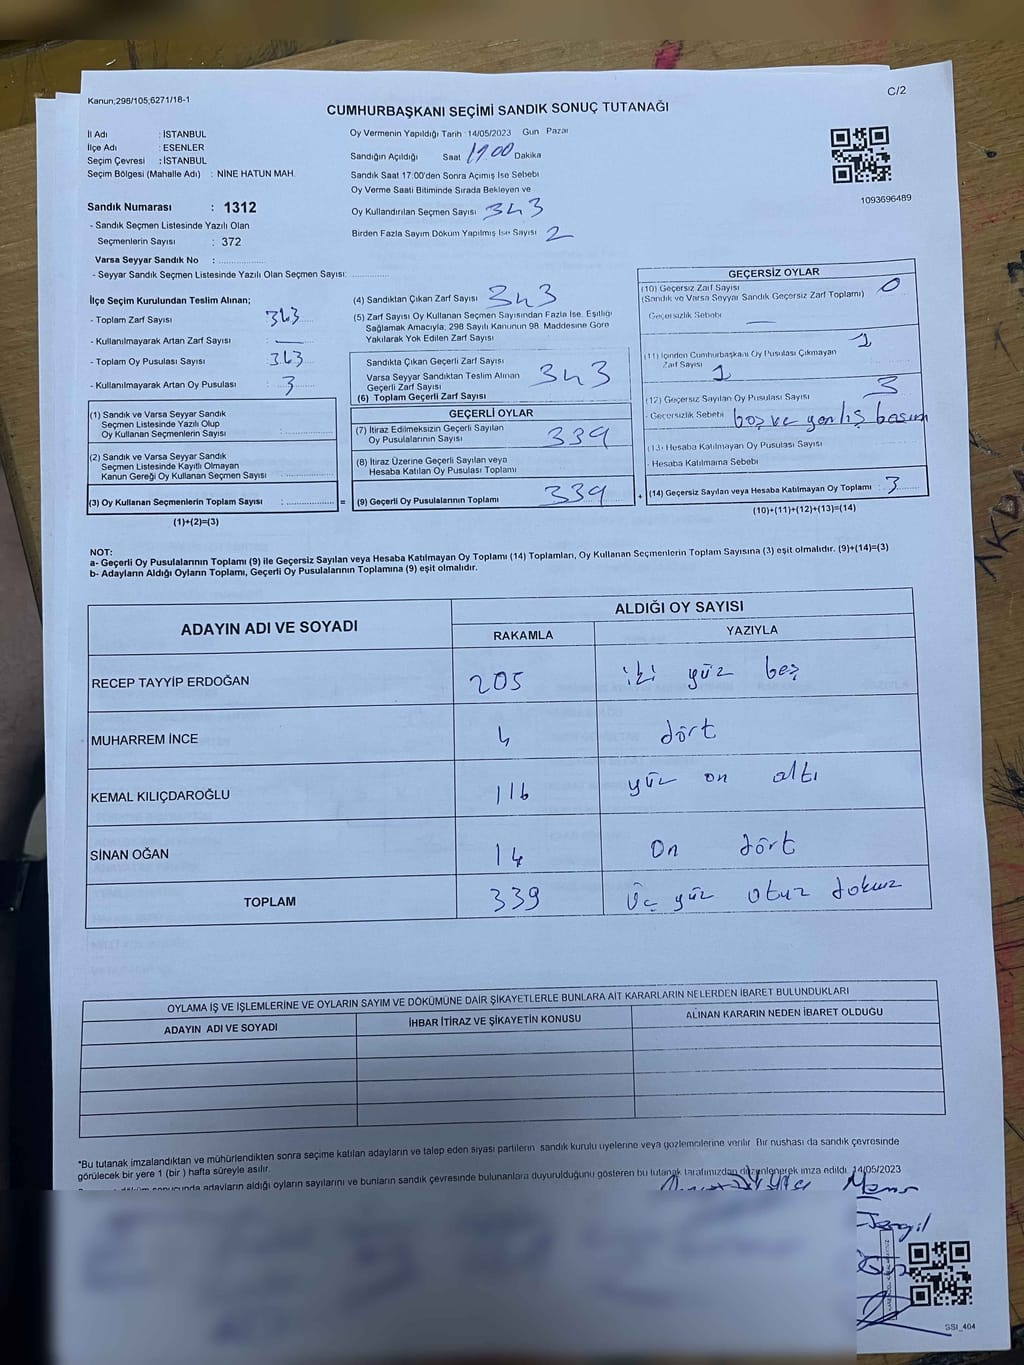 Kanun;298/105;6271/18-1
C/2
CUMHURBAŞKANI SEÇİMİ SANDIK SONUÇ TUTANAĞI
İl Adı : İSTANBUL
İlçe Adı : ESENLER
Seçim Çevresi : İSTANBUL
Seçim Bölgesi (Mahalle Adı) : NİNE HATUN MAH.
Oy Vermenin Yapıldığı Tarih : 14/05/2023 Gun Pazar
Sandığın Açıldığı Saat Dakika
Sandık Saat 17:00'den Sonra Açımış İse Sebebi
Oy Verme Saati Bitiminde Sırada Bekleyen ve
Oy Kullandırılan Seçmen Sayısı 343
Birden Fazla Sayım Döküm Yapılmış İse Sayısı 2
1093696489
Sandık Numarası : 1312
- Sandık Seçmen Listesinde Yazılı Olan
Seçmenlerin Sayısı : 372
Varsa Seyyar Sandık No :
- Seyyar Sandık Seçmen Listesinde Yazılı Olan Seçmen Sayısı:
İlçe Seçim Kurulundan Teslim Alınan;
- Toplam Zarf Sayısı : 363
- Kullanılmayarak Artan Zarf Sayısı :
- Toplam Oy Pusulası Sayısı : 363
- Kullanılmayarak Artan Oy Pusulası : 3
(1) Sandık ve Varsa Seyyar Sandık
Seçmen Listesinde Yazılı Olup
Oy Kullanan Seçmenlerin Sayısı :
(2) Sandık ve Varsa Seyyar Sandık
Seçmen Listesinde Kayıtlı Olmayan
Kanun Gereği Oy Kullanan Seçmen Sayısı :
(3) Oy Kullanan Seçmenlerin Toplam Sayısı : =
(1)+(2)=(3)
(4) Sandıktan Çıkan Zarf Sayısı 343
(5) Zarf Sayısı Oy Kullanan Seçmen Sayısından Fazla İse, Eşitliği
Sağlamak Amacıyla; 298 Sayılı Kanunun 98. Maddesine Göre
Yakılarak Yok Edilen Zarf Sayısı
Sandıkta Çıkan Geçerli Zarf Sayısı
Varsa Seyyar Sandıktan Teslim Alınan
Geçerli Zarf Sayısı
(6) Toplam Geçerli Zarf Sayısı 343
GEÇERLİ OYLAR
(7) İtiraz Edilmeksizin Geçerli Sayılan
Oy Pusulalarının Sayısı 339
(8) İtiraz Üzerine Geçerli Sayılan veya
Hesaba Katılan Oy Pusulası Toplamı
(9) Geçerli Oy Pusulalarının Toplamı 339 +
GEÇERSİZ OYLAR
(10) Geçersiz Zarf Sayısı 0
(Sandık ve Varsa Seyyar Sandık Geçersiz Zarf Toplamı)
Geçersizlik Sebebi
(11) İçinden Cumhurbaşkanı Oy Pusulası Çıkmayan 1
Zarf Sayısı 1
(12) Geçersiz Sayılan Oy Pusulası Sayısı 3
- Geçersizlik Sebebi boş ve yanlış basım
(13) Hesaba Katılmayan Oy Pusulası Sayısı
- Hesaba Katılmama Sebebi
(14) Geçersiz Sayılan veya Hesaba Katılmayan Oy Toplamı : 3
(10)+(11)+(12)+(13)=(14)
NOT:
a- Geçerli Oy Pusulalarının Toplamı (9) ile Geçersiz Sayılan veya Hesaba Katılmayan Oy Toplamı (14) Toplamları, Oy Kullanan Seçmenlerin Toplam Sayısına (3) eşit olmalıdır. (9)+(14)=(3)
b- Adayların Aldığı Oyların Toplamı, Geçerli Oy Pusulalarının Toplamına (9) eşit olmalıdır.
ADAYIN ADI VE SOYADI
ALDIĞI OY SAYISI
RAKAMLA YAZIYLA
RECEP TAYYİP ERDOĞAN 205 iki yüz beş
MUHARREM İNCE 4 dört
KEMAL KILIÇDAROĞLU 116 yüz on altı
SİNAN OĞAN 14 On dört
TOPLAM 339 Üç yüz otuz dokuz
OYLAMA İŞ VE İŞLEMLERİNE VE OYLARIN SAYIM VE DÖKÜMÜNE DAİR ŞİKAYETLERLE BUNLARA AİT KARARLARIN NELERDEN İBARET BULUNDUKLARI
ADAYIN ADI VE SOYADI İHBAR İTİRAZ VE ŞİKAYETİN KONUSU ALINAN KARARIN NEDEN İBARET OLDUĞU
*Bu tutanak imzalandıktan ve mühürlendikten sonra seçime katılan adayların ve talep eden siyasi partilerin sandık kurulu üyelerine veya gözlemcilerine verilir. Bir nushası da sandık çevresinde
görülecek bir yere 1 (bir) hafta süreyle asılır.
sonucunda adayların aldığı oyların sayılarını ve bunların sandık çevresinde bulunanlara duyurulduğunu gösteren bu tutanak tarafımızdan düzenlenerek imza edildi. 14/05/2023
SSI_404